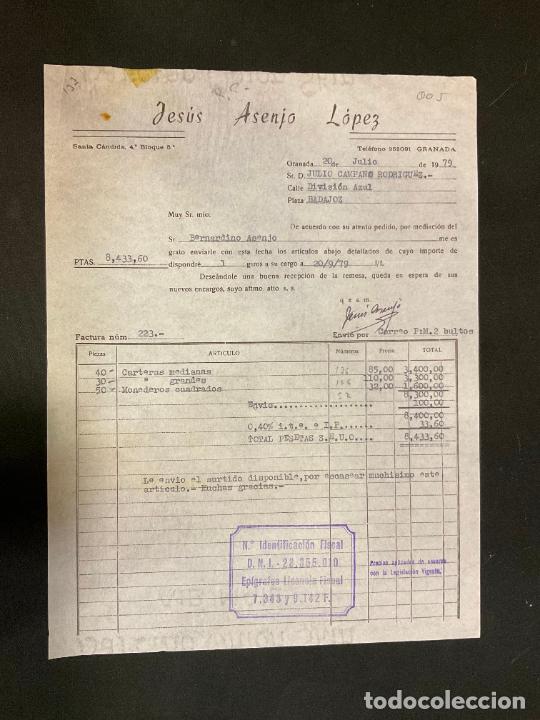 005
Jesús Asenjo López
Santa Cándida, 4.ª Bloque 5.º
Teléfono 252091 GRANADA
Granada 20 de Julio de 1979
Sr. D. JULIO CAMPANO RODRIGUEZ.-
Calle División Azul
Plaza BADAJOZ
Muy Sr. mío:
De acuerdo con su atento pedido, por mediación del
Sr. Bernardino Asenjo me es
grato enviarle con esta fecha los artículos abajo detallados de cuyo importe de
PTAS. 8,433,60 dispondré 1 giros a su cargo a 20/9/79 v/.
Deseándole una buena recepción de la remesa, queda en espera de sus
nuevos encargos, suyo affmo. atto s. s.
q e s m
Jesús Asenjo
Factura núm. 223.- Envío por Correo PtM.2 bultos
Piezas ARTICULO Número Precio TOTAL
40 - Carteras medianas 85,00 3,400,00
30 - " grandes 110,00 3,300,00
50 - Monederos cuadrados 32,00 1,600,00
8,300,00
Envio.................... 100,00
8,400,00
0,40% i.t.e. e I.F...... 33,60
TOTAL PESETAS S.E.U.O.... 8,433,60
Le envio el surtido disponible,por escasear muchisimo este
articulo.- Muchas gracias.-
N.º Identificación Fiscal
D. N. I. - 23.355.010
Epígrafes Licencia Fiscal
7.343 y 9.142 F.
Precios aplicados de acuerdo
con la Legislación Vigente.
todocoleccion
todocoleccion.net